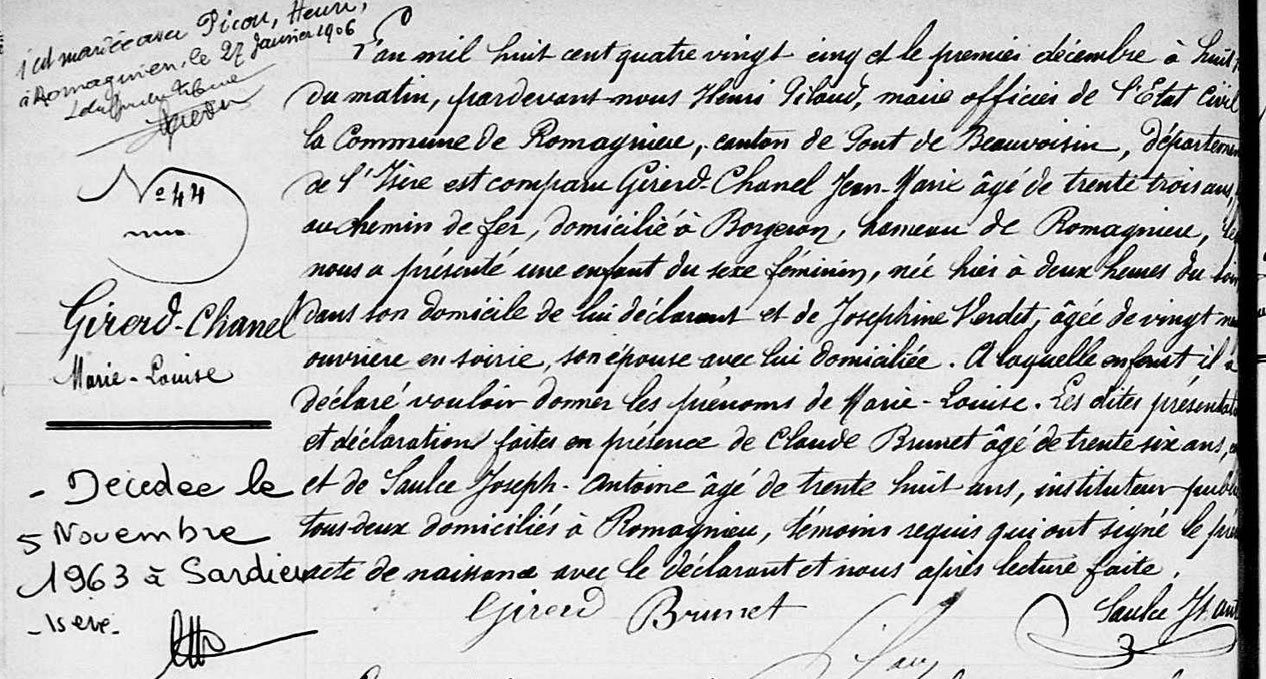 mariée avec Picou, Henri,
à Romagnieu, le 27 Janvier 1906
Nº 44
Girerd-Chanel
Marie-Louise
- Décédée le
5 Novembre
1963 à Sardieu
- Isère -
L'an mil huit cent quatre vingt cinq et le premier décembre à huit
du matin, pardevant-nous Henri Pilaud, maire officier de l'Etat Civil
la Commune de Romagnieu, canton de Pont de Beauvoisin, département
de l'Isère est comparu Girerd-Chanel Jean-Marie âgé de trente trois ans,
au chemin de fer, domicilié à Borgeron, hameau de Romagnieu,
nous a présenté une enfant du sexe féminin, née hier à deux heures du soir
dans son domicile de lui déclarant et de Josephine Verdet, âgée de vingt
ouvriere en soirie, son épouse avec lui domiciliée. A laquelle enfant il a
déclaré vouloir donner les prénoms de Marie-Louise. Les dites
et déclaration faites en présence de Claude Brunet âgé de trente six ans,
et de Saulce Joseph-Antoine âgé de trente huit ans, instituteur public
tous deux domiciliés à Romagnieu, témoins requis qui ont signé le
acte de naissance avec le déclarant et nous après lecture faite.
Girerd Brunet Saulce Jh. Ant